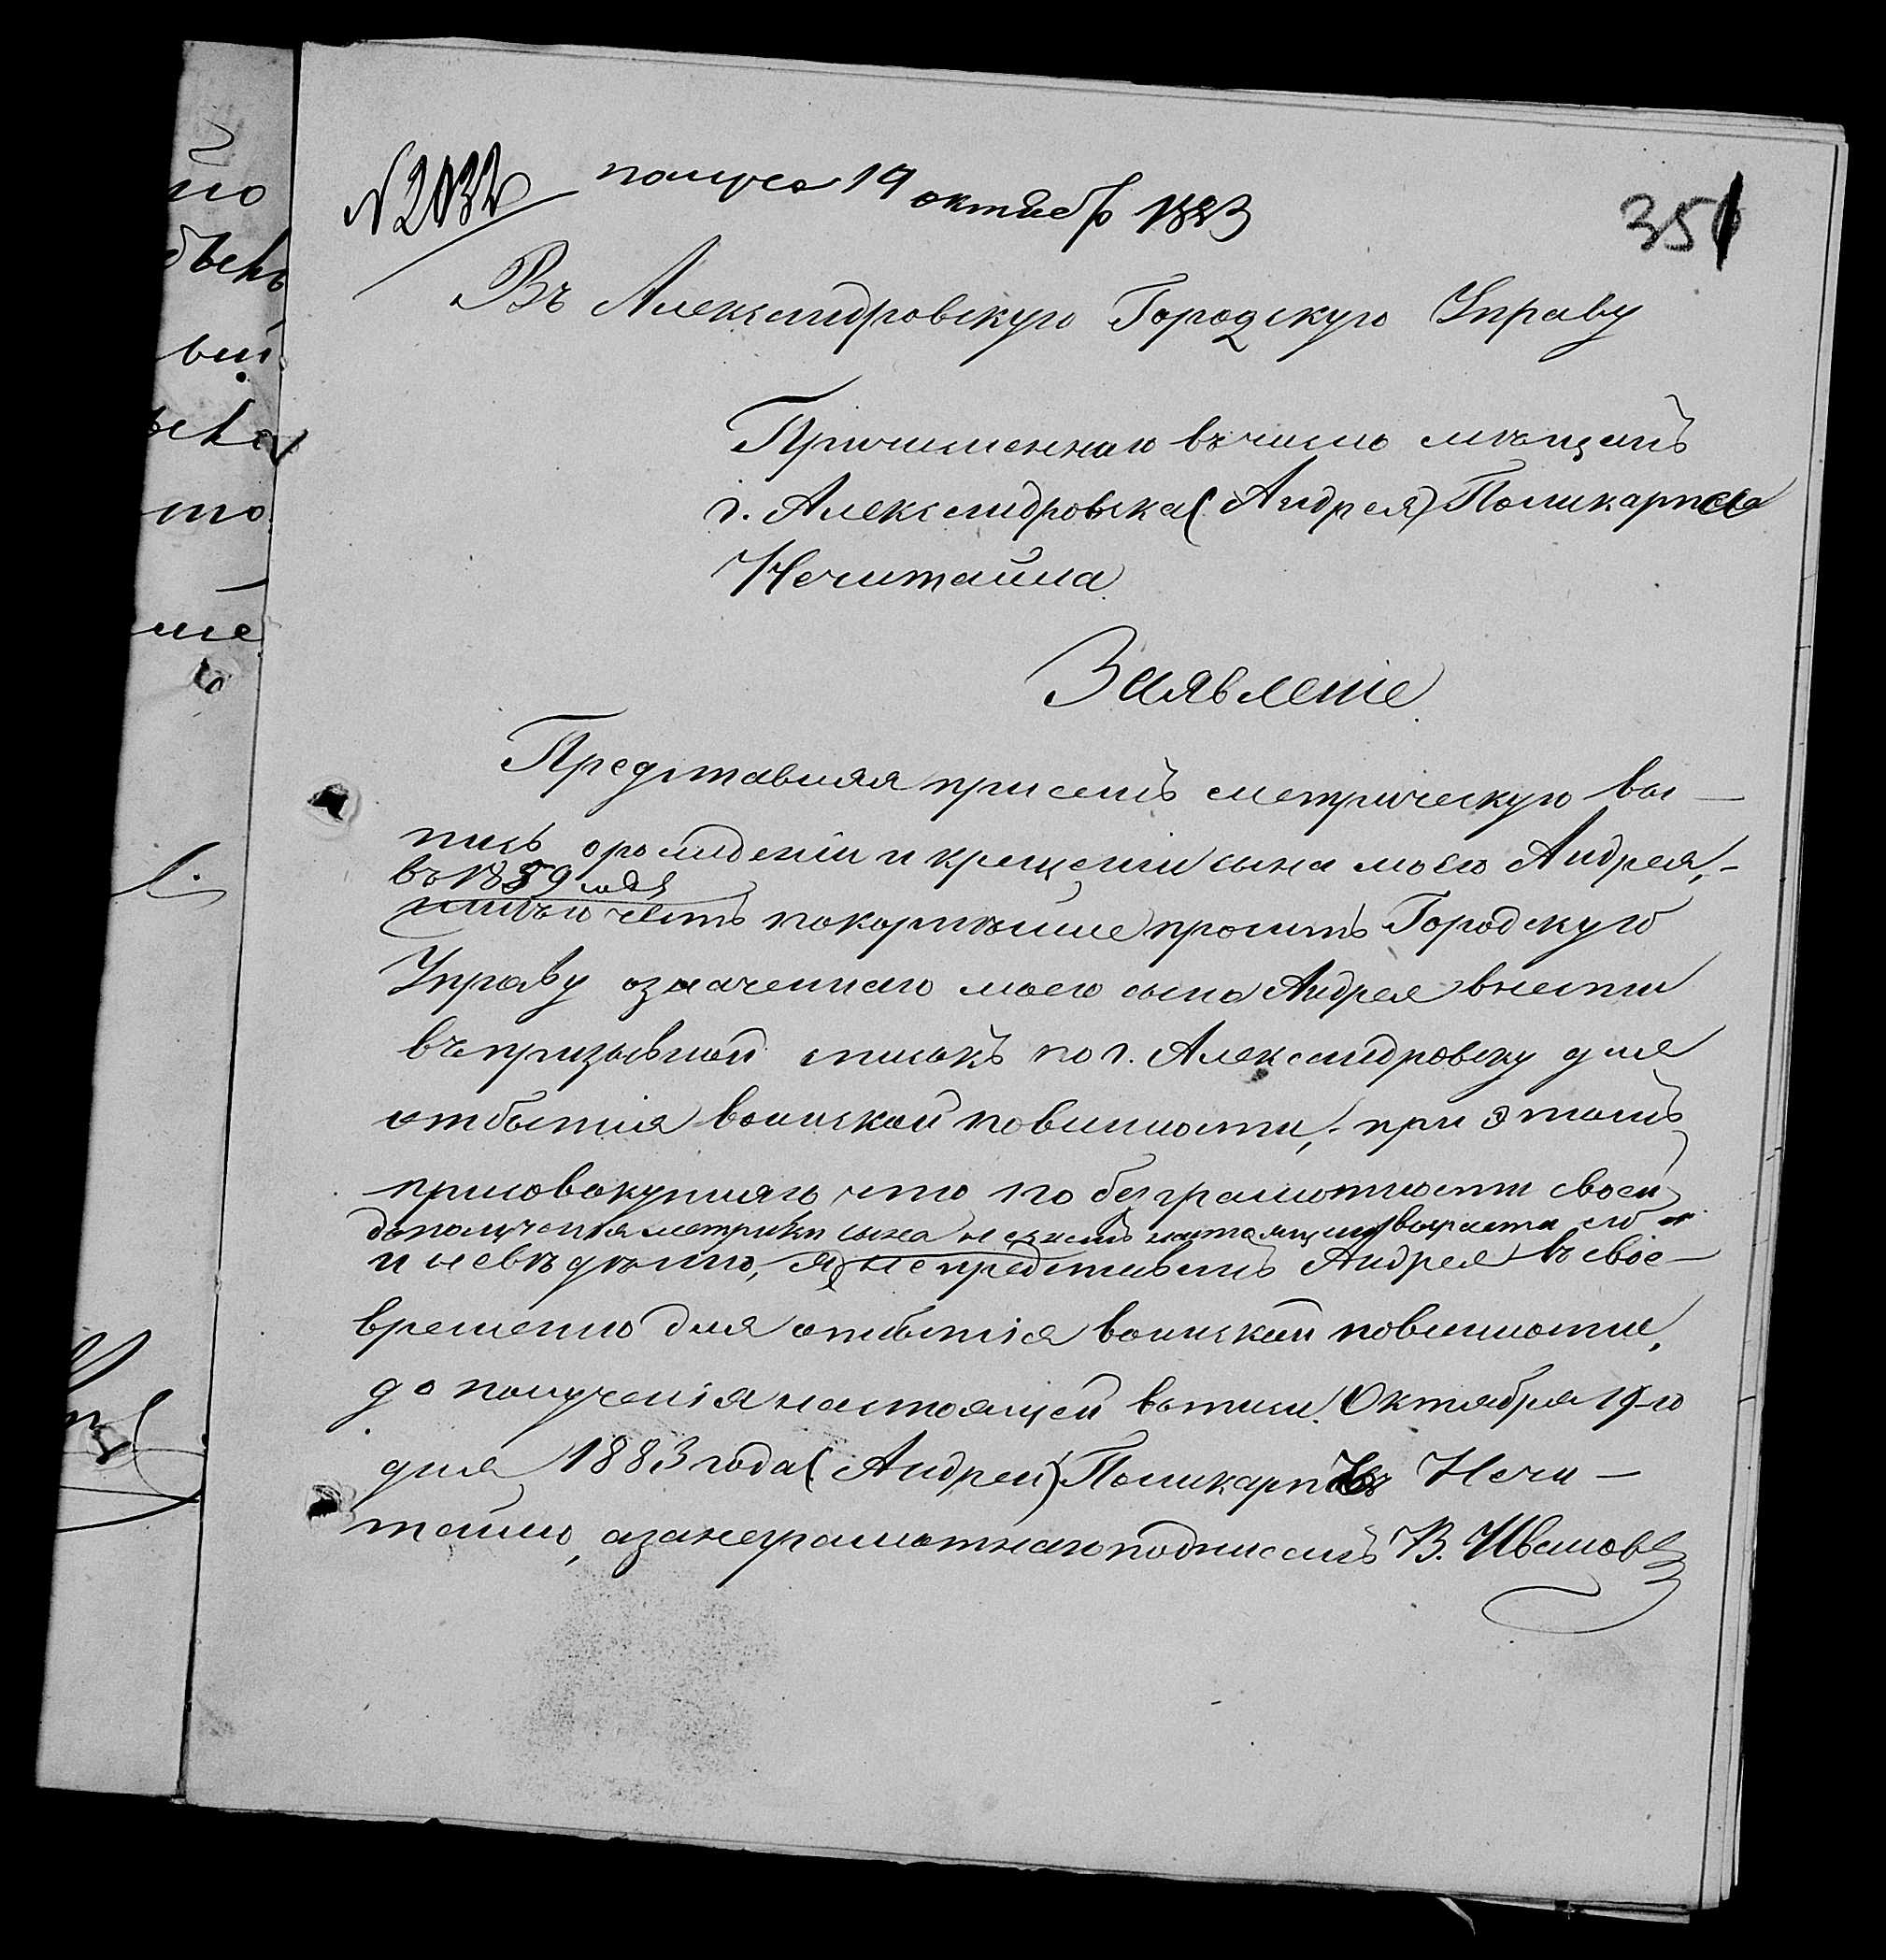 № 2032 получ 19 октябр 1883
351
Въ Александровскую Городскую Управу
Причисленнаго въ число мѣщанъ
г. Александровска (Андрея) Поликарпа
Нечитайла
Заявленіе
Представляя при семъ метрическую вы-
пись о рожденіи и крещеніи сына моего Андрея,-
въ 1859 годѣ
имѣю честь покорнѣйше просить Городскую
Управу означеннаго моего сына Андрея внести
въ призывной списокъ по г. Александровску для
отбытія воинской повинности, при этомъ
присовокупляю что по безграмотности своей
до полученія метрики сына не зналъ настоящаго возраста его и
и невѣдѣнію, я не представилъ Андрея въ свое-
временно для отбытія воинской повинности,
до полученія настоящей выписи. Октября 19-го
дня 1883 года (Андрей) Поликарпъ Нечи-
тайло, а за неграмотнаго подписалъ В. Ивановъ